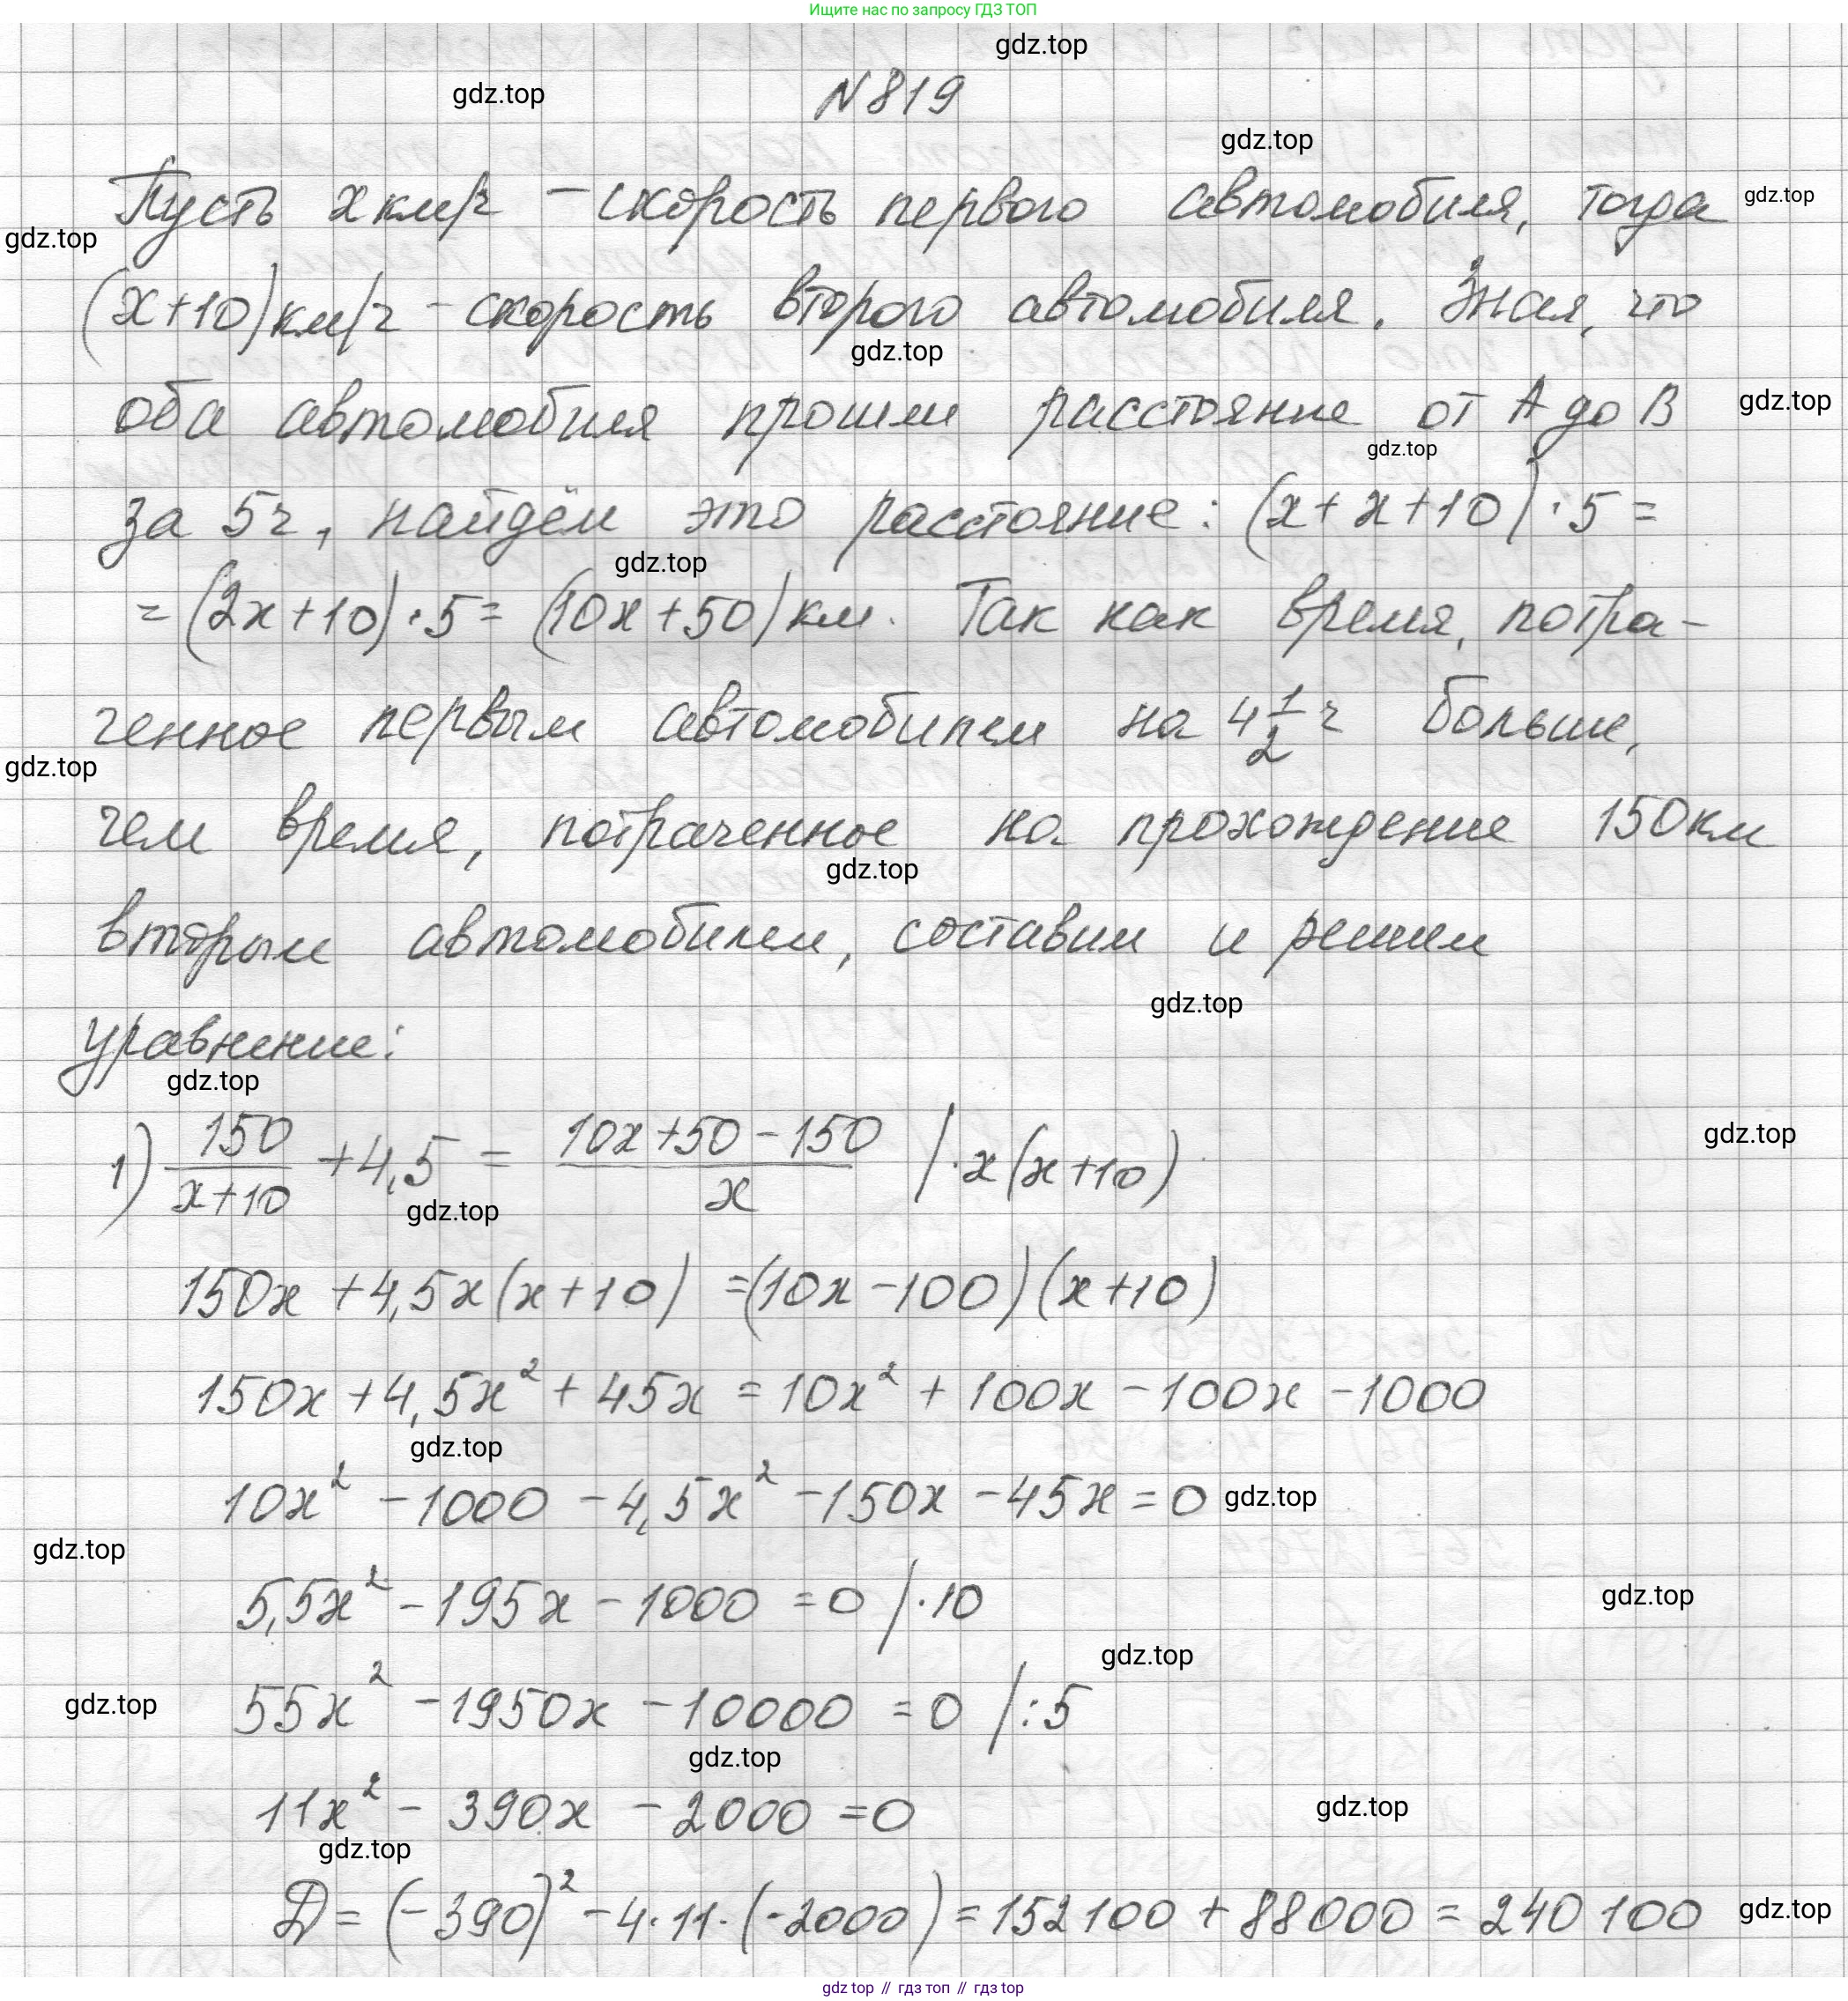 Ищите нас по запросу ГДЗ ТОП
gdz.top
gdz.top
N 819
gdz.top
Пусть x км/ч – скорость первого автомобиля, тогда
gdz.top
gdz.top
(x+10) км/ч – скорость второго автомобиля. Зная, что
gdz.top
оба автомобиля прошли расстояние от A до B
gdz.top
gdz.top
за 5ч, найдём это расстояние: (x+x+10)·5=
gdz.top
=(2x+10)·5=(10x+50) км. Так как время, потра-
ченное первым автомобилем на 4 1/2 ч больше,
gdz.top
чем время, потраченное на прохождение 150км
gdz.top
вторым автомобилем, составим и решим
gdz.top
уравнение:
gdz.top
1) 150/(x+10) + 4,5 = (10x+50-150)/x |·x(x+10)
gdz.top
gdz.top
150x+4,5x(x+10)=(10x-100)(x+10)
150x+4,5x²+45x=10x²+100x-100x-1000
gdz.top
10x²-1000-4,5x²-150x-45x=0
gdz.top
gdz.top
5,5x²-195x-1000=0 |·10
gdz.top
gdz.top
55x²-1950x-10000=0 |:5
gdz.top
gdz.top
11x²-390x-2000=0
gdz.top
gdz.top
D=(-390)²-4·11·(-2000)=152100+88000=240100
gdz.top
gdz top // гдз топ // гдз top